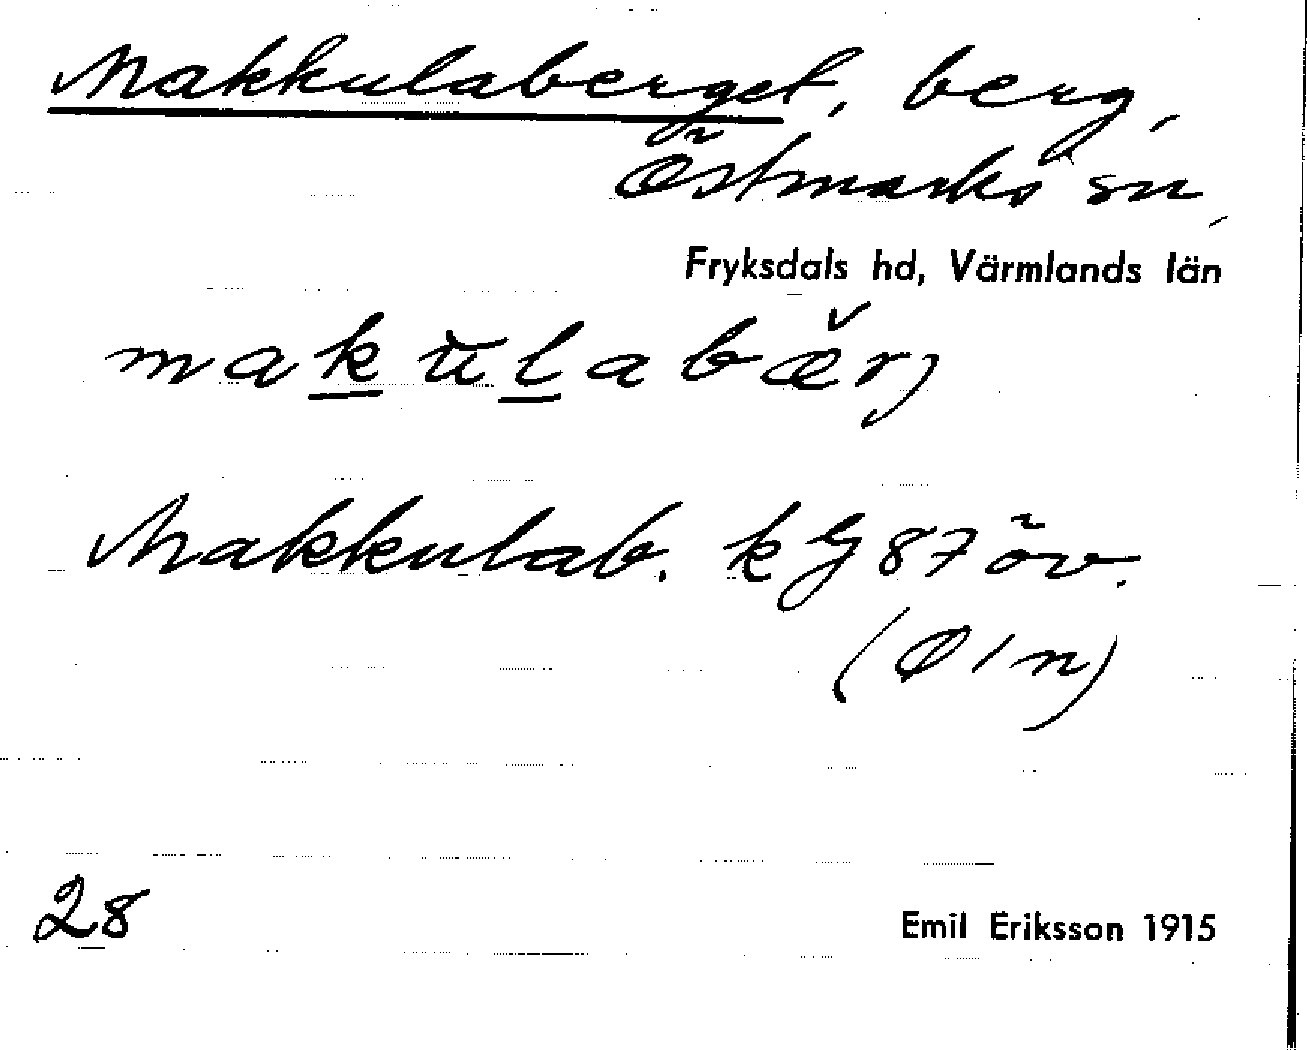 Makkulaberget, berg,
Östmarks sn,
Fryksdals hd, Värmlands län
makŭlabæ̆rj
Makkulab. kG 87 öv.
(Ø/n)
28
Emil Eriksson 1915